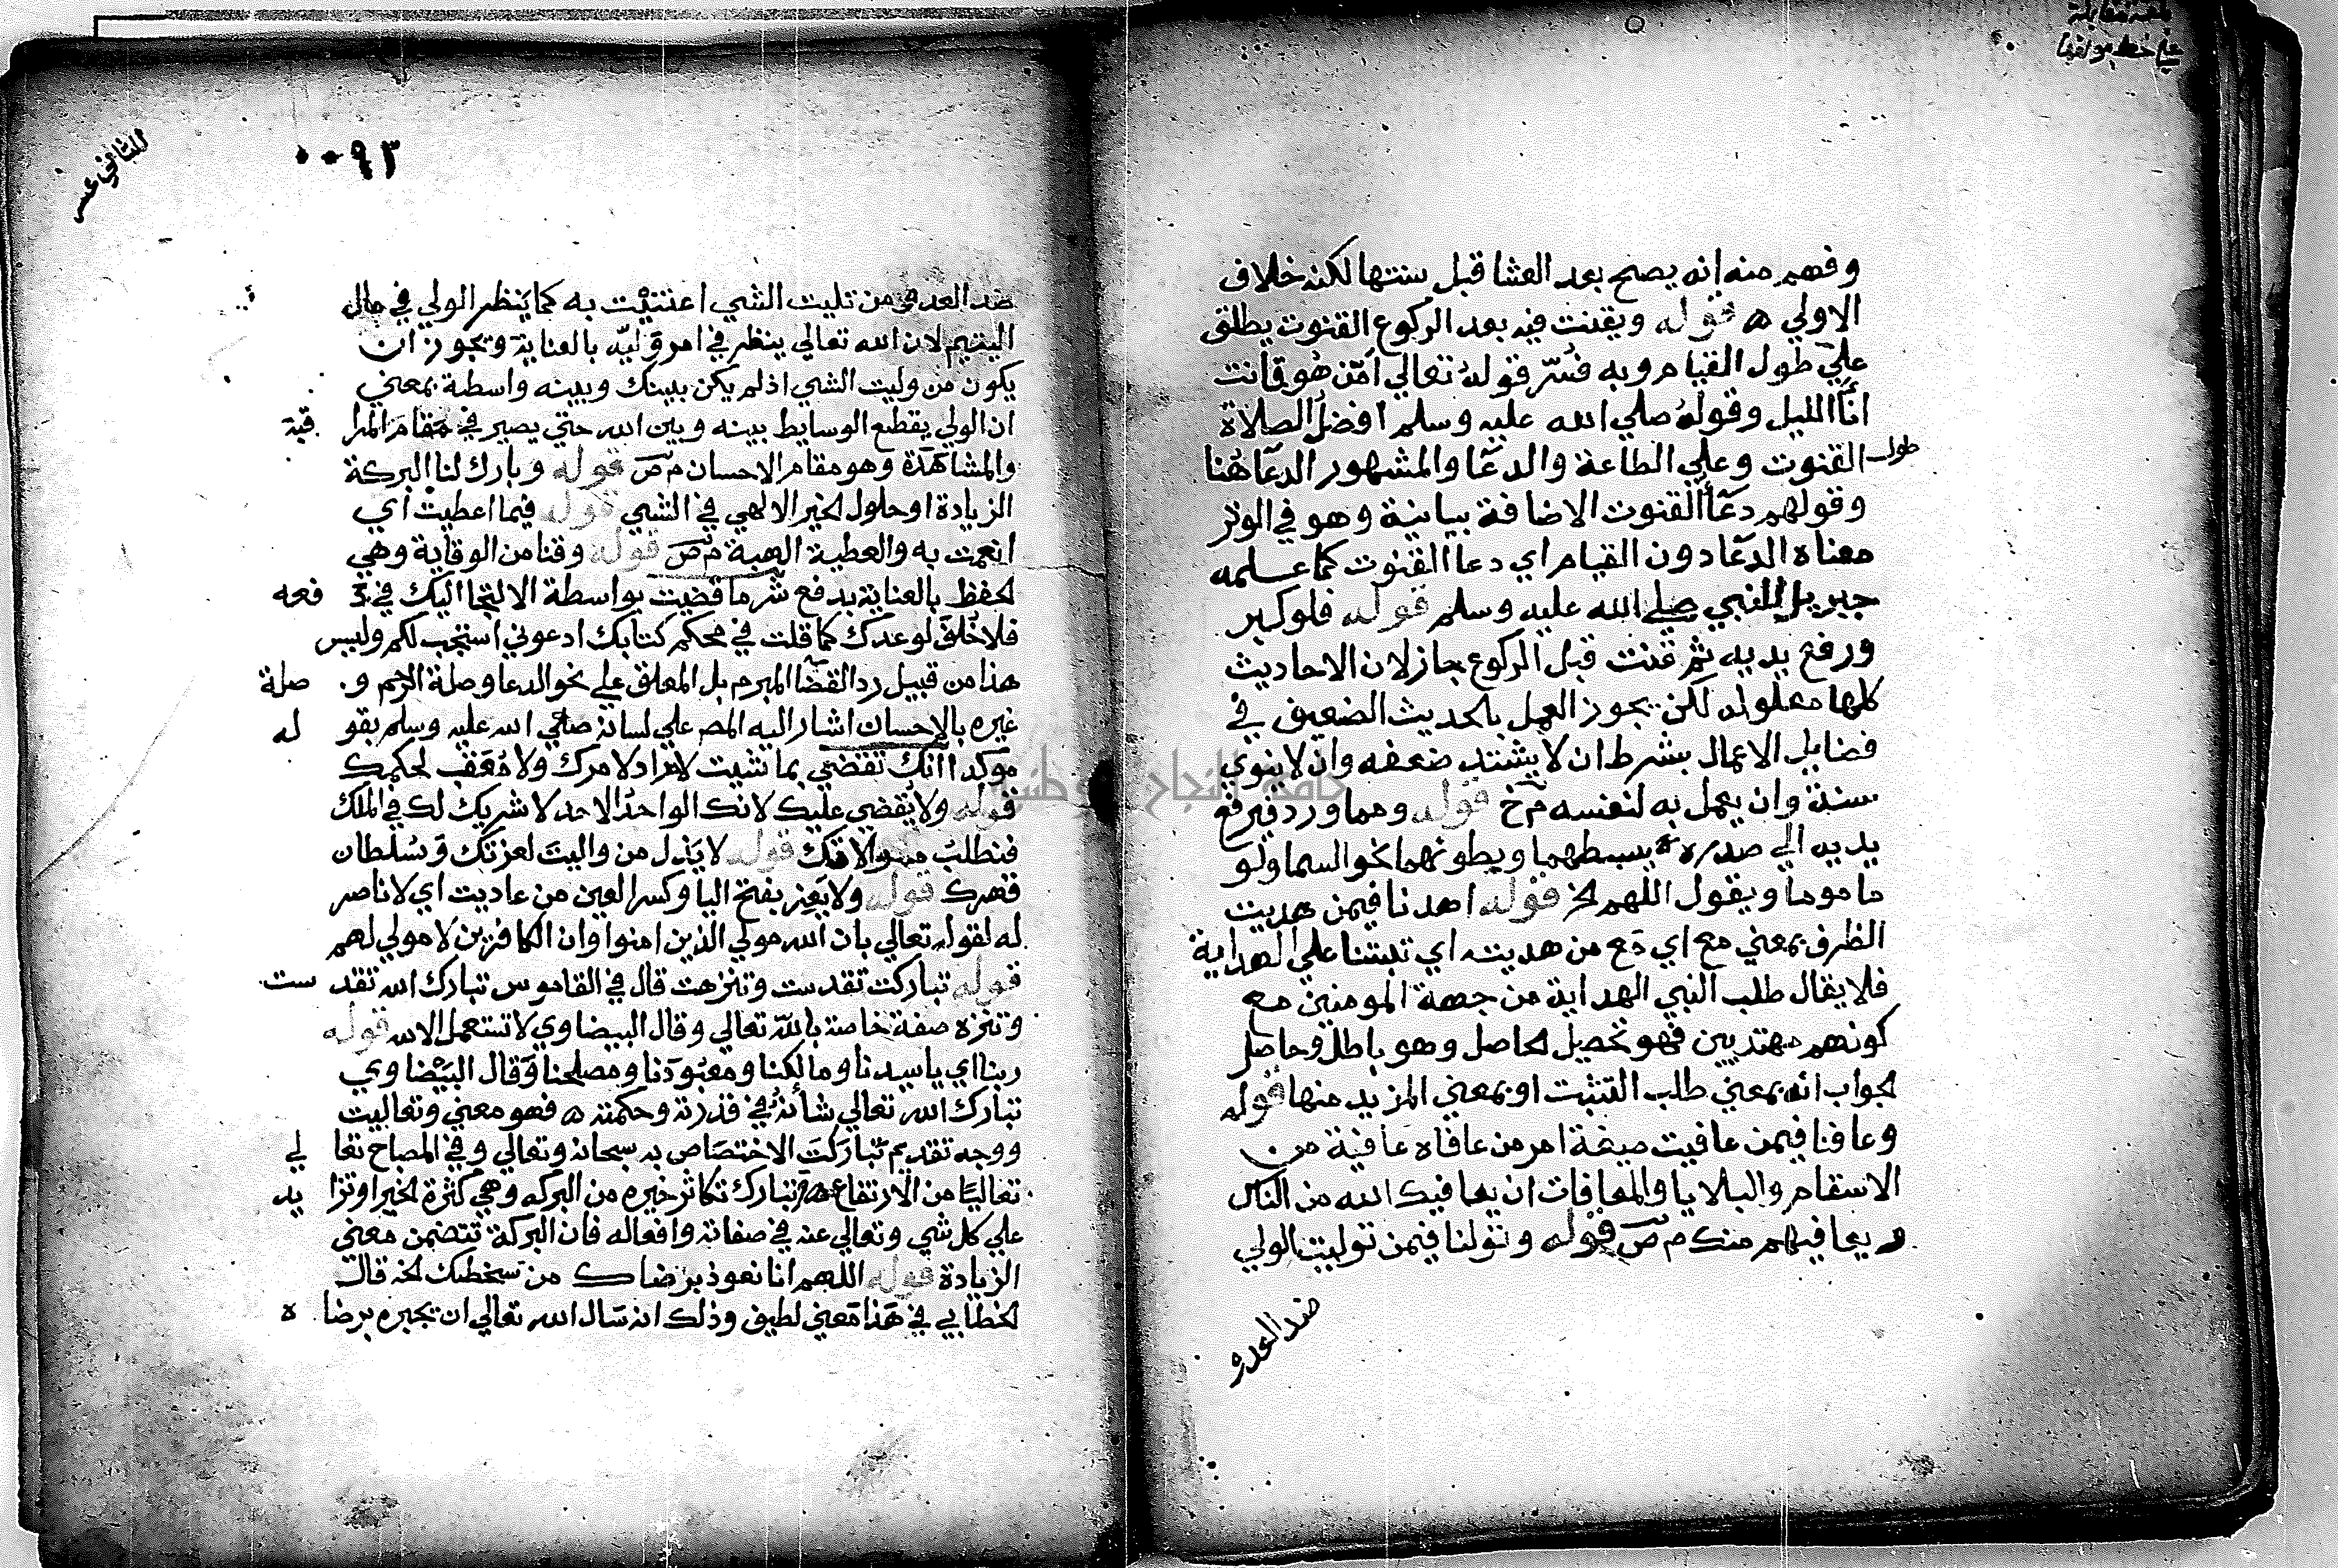 بلغ مقابلة
علي خط مولفها
وفهم منه انه يصح بعد العشا قبل سنتها لكنه خلاف
الاولي ه قوله ويقنت فيه بعد الركوع القنوت يطلق
علي طول القيام وبه فسّر قوله تعالي أمّن هُو قانت
انآ الليل وقوله صلي الله عليه وسلم افضل الصلاة
طول القنوت وعلي الطاعة والدعآ والمشهور الدعآ هُنا
وقولهم دعآ القنوت الاضافة بيانية وهو في الوتر
معناه الدعآ دون القيام اي دعا القنوت كما علمه
جبريل للنبي صلي الله عليه وسلم قوله فلو كبر
ورفع يديه ثم قنت قبل الركوع جاز لان الاحاديث
كلها معلوله لكن يجوز العمل بالحديث الضعيف في
فضايل الاعمال بشرط ان لا يشتد ضعفه وان لا ينوي
سنة وان يعمل به لنفسه م خ قوله ومما ورد فيرفع
يديه الي صدره يبسطهما وبطونهما نحو السما ولو
ماموما ويقول اللهم لخ قوله اهدنا فيمن هديت
الظرف بمعني مع اي مَع من هديته اي ثبتنا علي الهداية
فلا يقال طلب النبي الهداية من جهة المومنين مع
كونهم مهتديين فهو تحصيل لحاصل وهو باطل وحاصل
لجواب انه بمعني طلب التثبت او بمعني المزيد منها قوله
وعافنا فيمن عافيت صيغة امر من عافاه عافية من
الاسقام والبلايا والمعافات ان يعافيك الله من الناس
ويعافيهم منك م ص قوله وتولنا فيمن توليت الولي
ضد العدو
الثاني عشر
٠٠٩٣
ضد العدو من تليت الشي اعتنيْت به كما ينظر الولي في مال
اليتيم لان الله تعالي ينظر في امر وَليّه بالعناية وتجوز ان
يكون من وليت الشي اذ لم يكن بينك وبينه واسطة بمعني
ان الولي يقطع الوسايط بينه وبين الله حتي يصير في مقام المراقبة
والمشاهدة وهو مقام الاحسان م ص قوله وبارك لنا البركة
الزيادة او حلول لخير الالهي في الشي قوله فيما اعطيت اي
انعمت به والعطية الهبة م ص قوله وقنا من الوقاية وهي
لحفظ بالعناية بدفع شر ما قضيت بواسطة الالتجا اليك في دفعه
فلا خُلفَ لوعدك كما قلت في محكم كتابك ادعوني استجب لكم وليس
هذا من قبيل رد القضآ المبرم بل المعلق علي نحو الدعا وصلة الرحم و صلة
غيره بالاحسان اشار اليه المص علي لسانه صلي الله عليه وسلم بقوله
موكدا انك تقضي بما شيت لا راد لامرك ولا مُعَقب لحكمك
قوله ولا يُقضي عليك لانك الواحدُ الاحد لا شريك لك في الملك
فنطلبُ موالاتك قوله لا يَذِل من واليتَ لعزتك وَسُلطان
قهرك قوله ولا يَعِز بفتح اليا وكسر العين من عاديت اي لا ناصر
له لقوله تعالي بان الله مولي الذين امنوا وان الكافرين لا مولي لهم
قوله تباركت تقدست وتنزهت قال في القاموس تبارك الله تقدست
وتنزه صفة خاصة بالله تعالي وقال البيضاوي لا تستعمل الا لله قوله
ربنا اي يا سيدنا ومالكنا ومعبُودَنا ومصلحنا وَقال البَيْضاوي
تبارك الله تعالي شأنهُ في قدرته وحكمته ه فهو معني وتعاليت
ووجه تقديم تَبارَكتَ الاختصَاص به سبحانه وتعالي وفي المصباح تعالي
تعاليًا من الارتفاع ه وتبارك تكاثر خيره من البركه وهي كثرة لخير او تزايد
علي كل شي وتعالي عنه في صفاته وافعاله فان البركة تتضمن معني
الزيادة قوله اللهم انا نعوذ برضاك من سخطك لخ قال
لخطابي في هَذا مَعني لطيف وذلك انه سَال الله تعالي ان يجيره برضاه